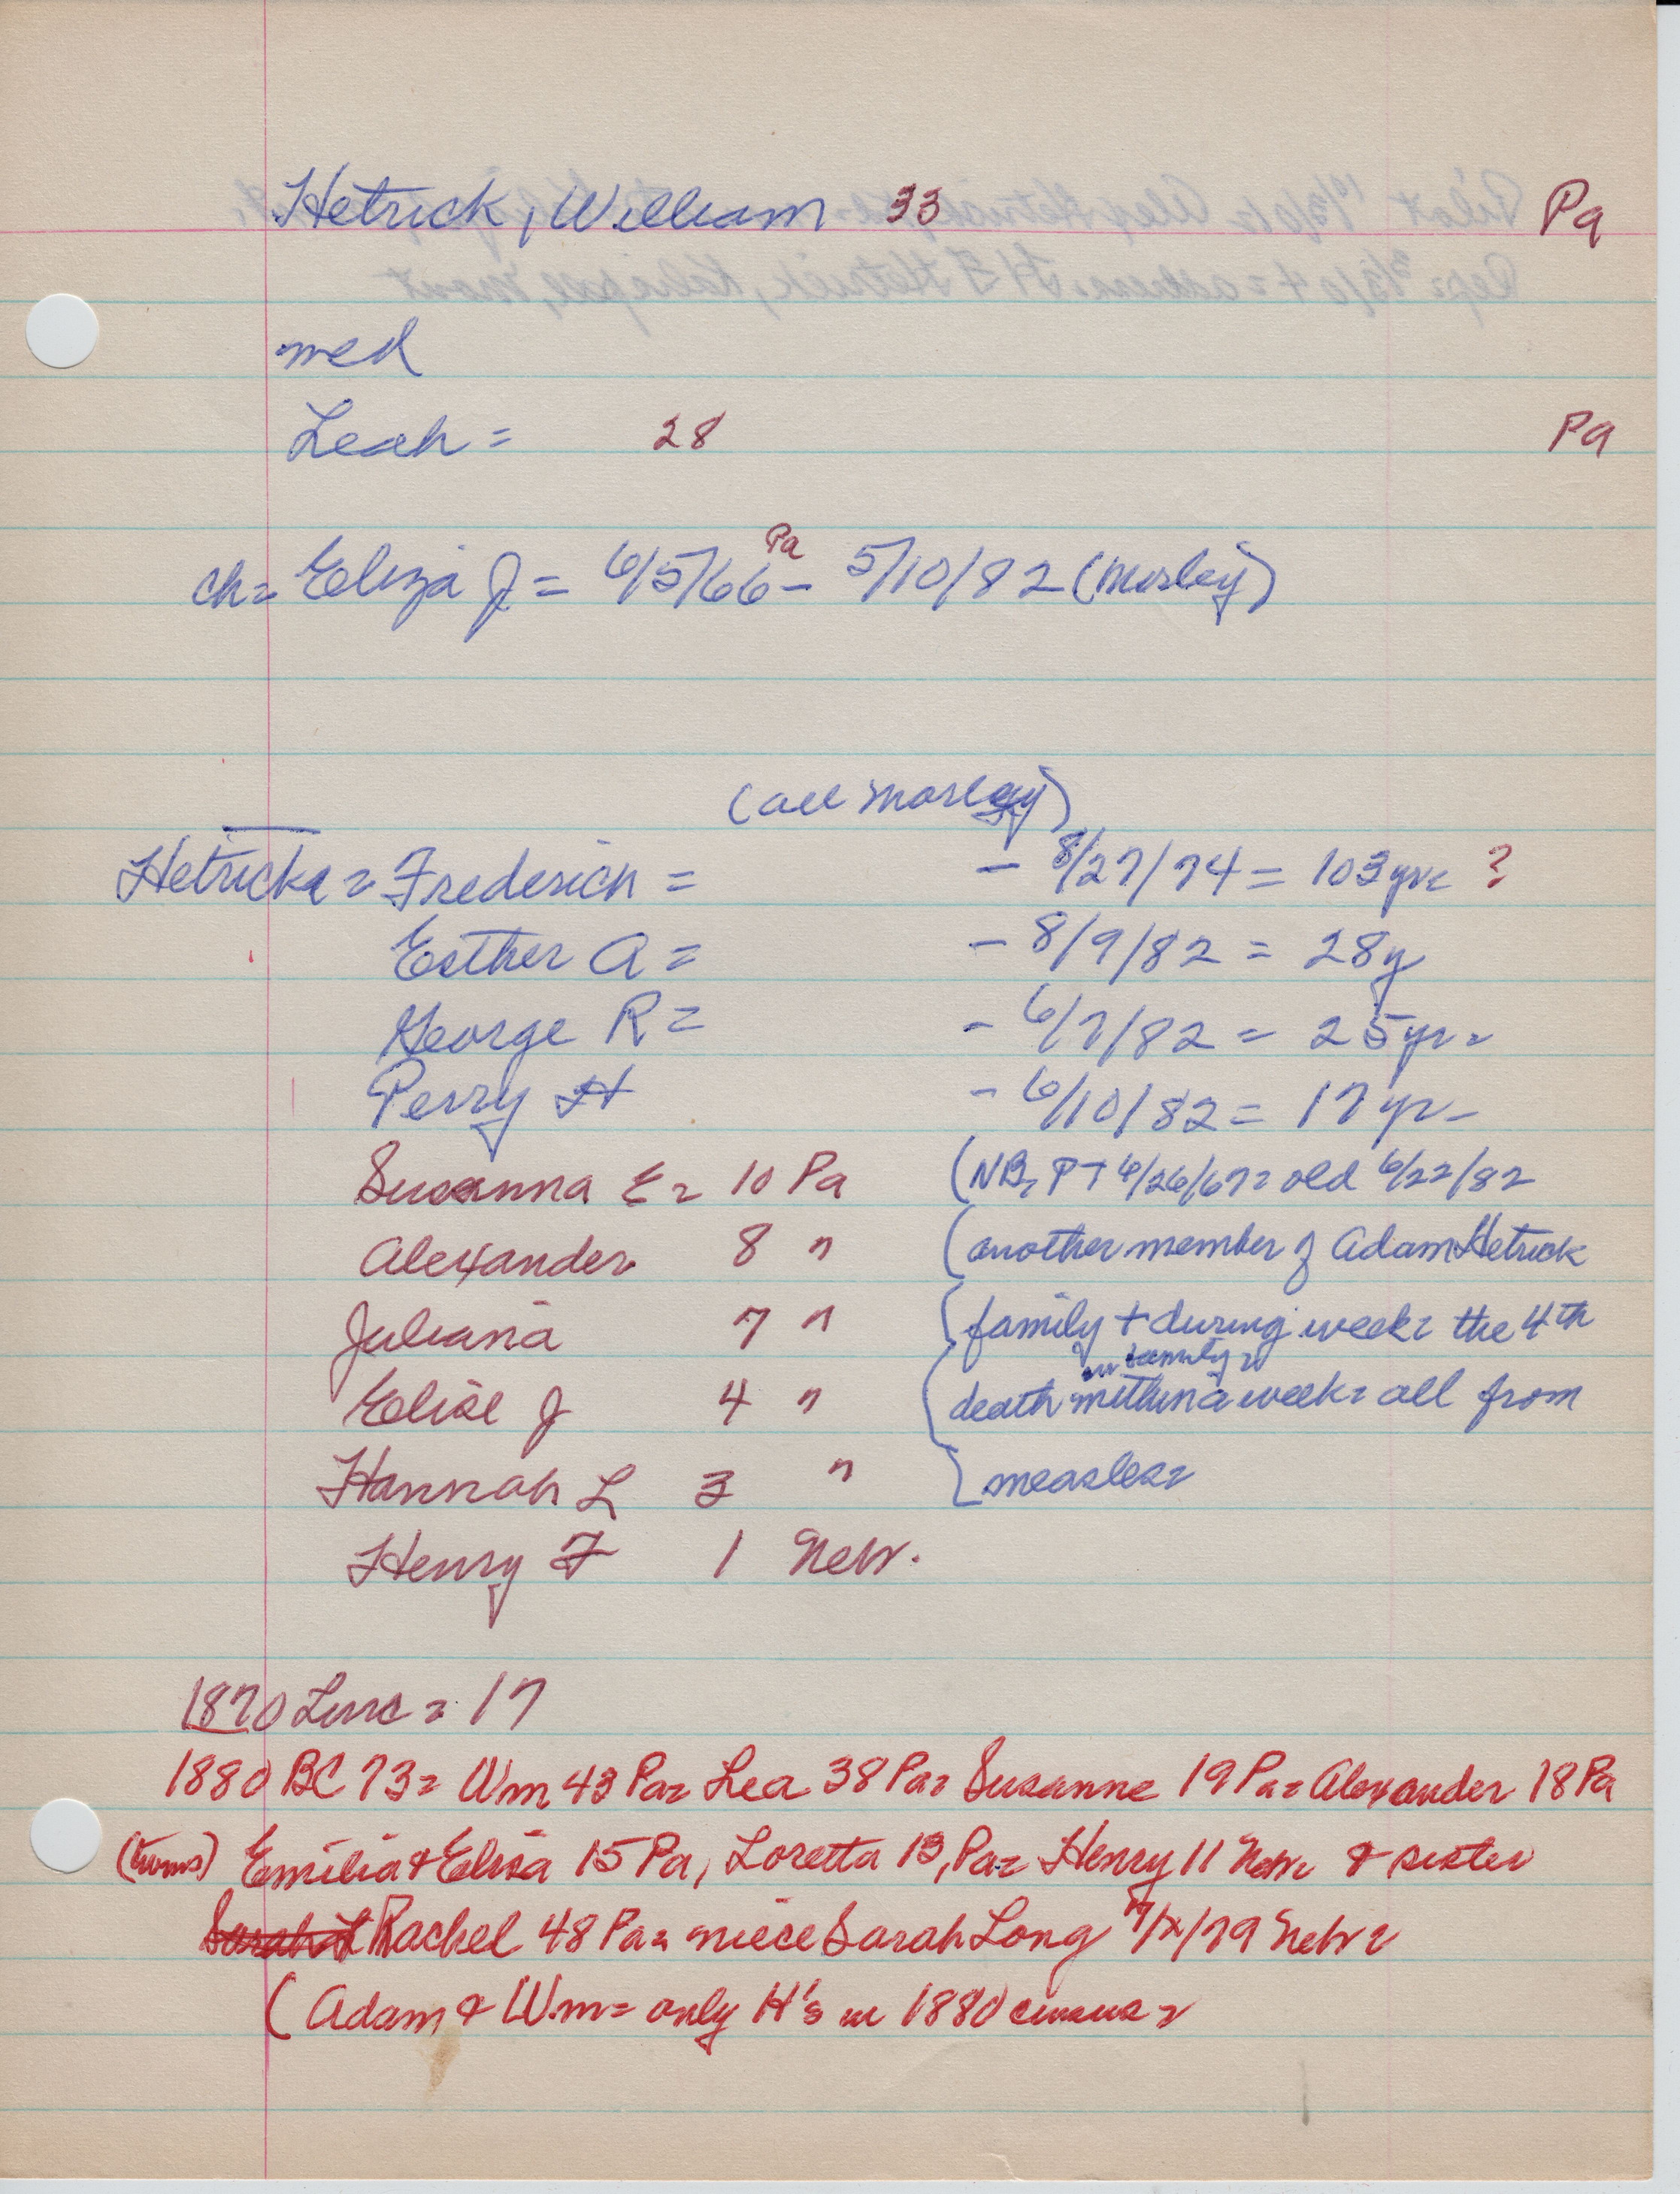 Hetrick, William 33 Pa
med
Leah = 28 Pa
Pa
ch= Eliza J = 6/5/66 - 5/10/82 (Morley)
(all Morley)
Hetricks = Frederich = - 8/27/74 = 103 yrs ?
Esther A = - 8/9/82 = 28y
George R = - 6/7/82 = 25yr=
Perry H - 6/10/82 = 17 yr-
Susanna E = 10 Pa (NB, PT 6/26/67= old 6/22/82
Alexander 8 " (another member of Adam Hetrick
Juliana 7 " (family + during week= the 4th
in family
Elise J 4 " (death within a week= all from
Hannah L 3 " (measles=
Henry F 1 Nebr.
1870 = 17
1880 BC 73= Wm 43 Pa= Lea 38 Pa= Susanne 19 Pa= Alexander 18 Pa
(twins) Emilia & Elisa 15 Pa, Loretta 13, Pa= Henry 11 Nebr & sister
Rachel 48 Pa= niece Sarah Long /79 Nebr=
(Adam & Wm= only H's in 1880 census=